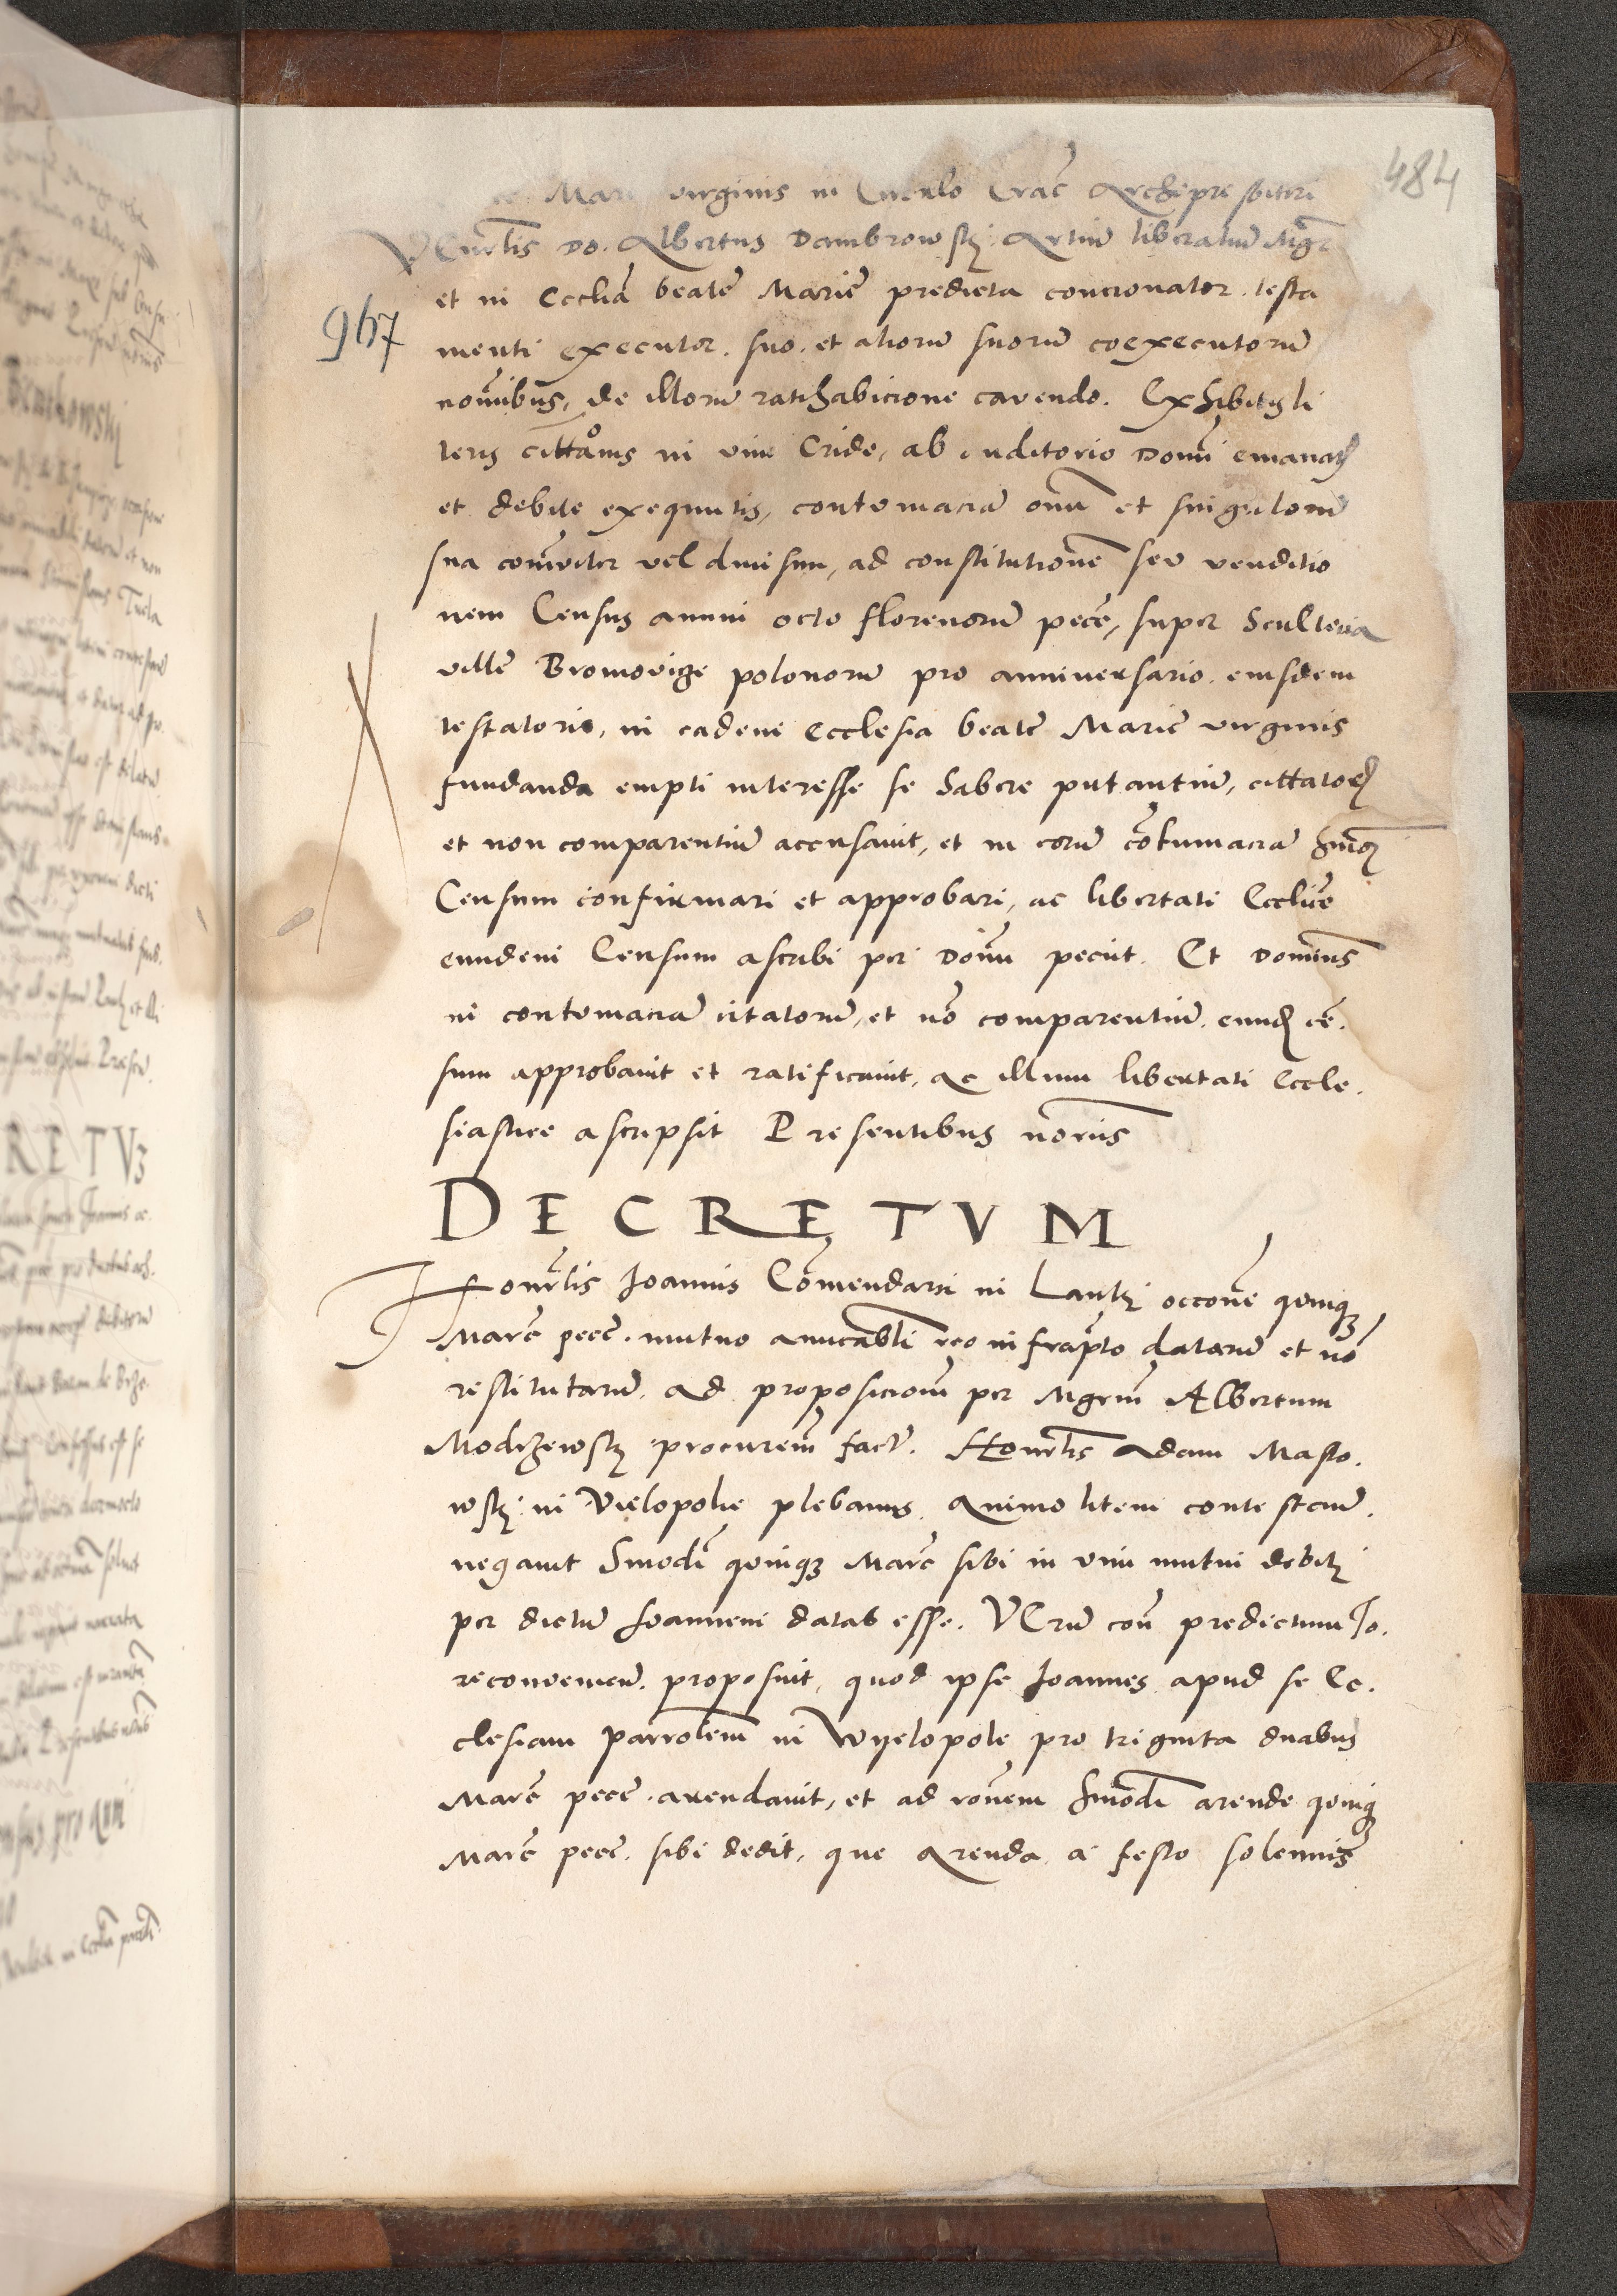 484
Mari virginis in Circulo Crac̃ Archipresbiteri
VEnr̃lis Do. Albertus Dambrowskj Artiũ liberaliũ Mgr̃
et in Eccliã beatẽ Mariẽ predicta concionator. testa
967
menti executor. suo. et aliorũ suorũ coexecutorũ
nomĩbus, de illorũ ratihabicione cavendo. Exhibitis li
teris cittatõis in vim Cride, ab auditorio Domĩ emanatis
et debite exequutis, contumaciã om̃ et singulorũ
sua com̃iter vel divisim, ad constitutionẽ seu venditio
nem Census annui octo florenorũ pecẽ, super Scultetia
villẽ Bronowige polonorũ pro anniversario. eiusdem
testatoris, in eadem Ecclesia beatẽ Mariẽ virginis
fundanda empti interesse se habere putantiũ, cittatorũ
et non comparentiũ accusavit, et in eorũ cõtumaciã hmõi
Censum confirmari et approbari, ac libertati Ecclicẽ
eundem Censum ascribi per Domĩ peciit. Et Dominus
in contumaciã citatorũ, et nõ comparentiũ. eund cẽ.
sum approbavit et ratificavit, ac illum libertati Eccle.
siastice ascripsit Presentibus notĩis
DECRETVM
Honr̃lis Joannis Com̃endarii in Lantzj occonẽ quinqz
Marc̃ pecẽ. mutuo amicabl̃i reo infrapto datarũ et nõ
restitutarũ. ad proposicionẽ per Mgrm̃ Albertum
Modrzewskj procurem̃ fact̃. Honr̃lis Adam Maslo.
wskj in Vielopolie plebanus. Animo litem contestan̄.
negavit hmodĩ quinqz Marc̃ sibi in vim mutui debiti
per dictũ Joannem datas esse. VErũ con̄ predictum Jo.
reconvenien̄. proposuit, quod ipse Joannes apud se Ec.
clesiam parrolem̃ in Wyelopole pro triginta duabus
Marc̃ pecẽ. arendavit, et ad ronẽm hmodĩ arende quinqz
Marc̃ pecẽ. sibi dedit, que Arenda a festo solennis